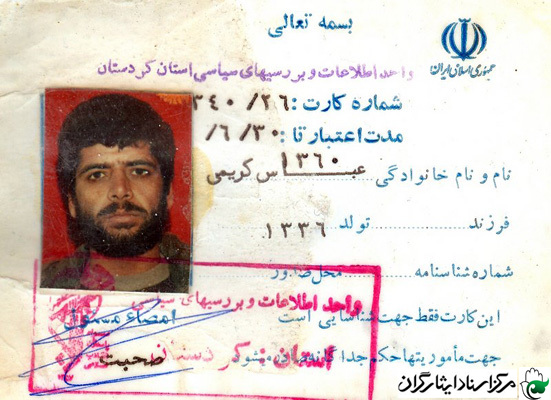 بسمه تعالی
جمهوری اسلامی ایران
واحد اطلاعات و بررسیهای سیاسی استان کردستان
شماره کارت : ۳۴۰/۲۶
مدت اعتبار تا : ۳۰/ ۶/
۱۳۶۰
نام و نام خانوادگی عباس کریمی
فرزند تولد ۱۳۳۶
شماره شناسنامه محل صدور
واحد اطلاعات و بررسیهای سیاسی
این کارت فقط جهت شناسایی است
امضاء مسئول
جهت مأموریتها حکم جداگانه میشود
استان کردستان
صحبت
مرکز اسناد ایثارگران